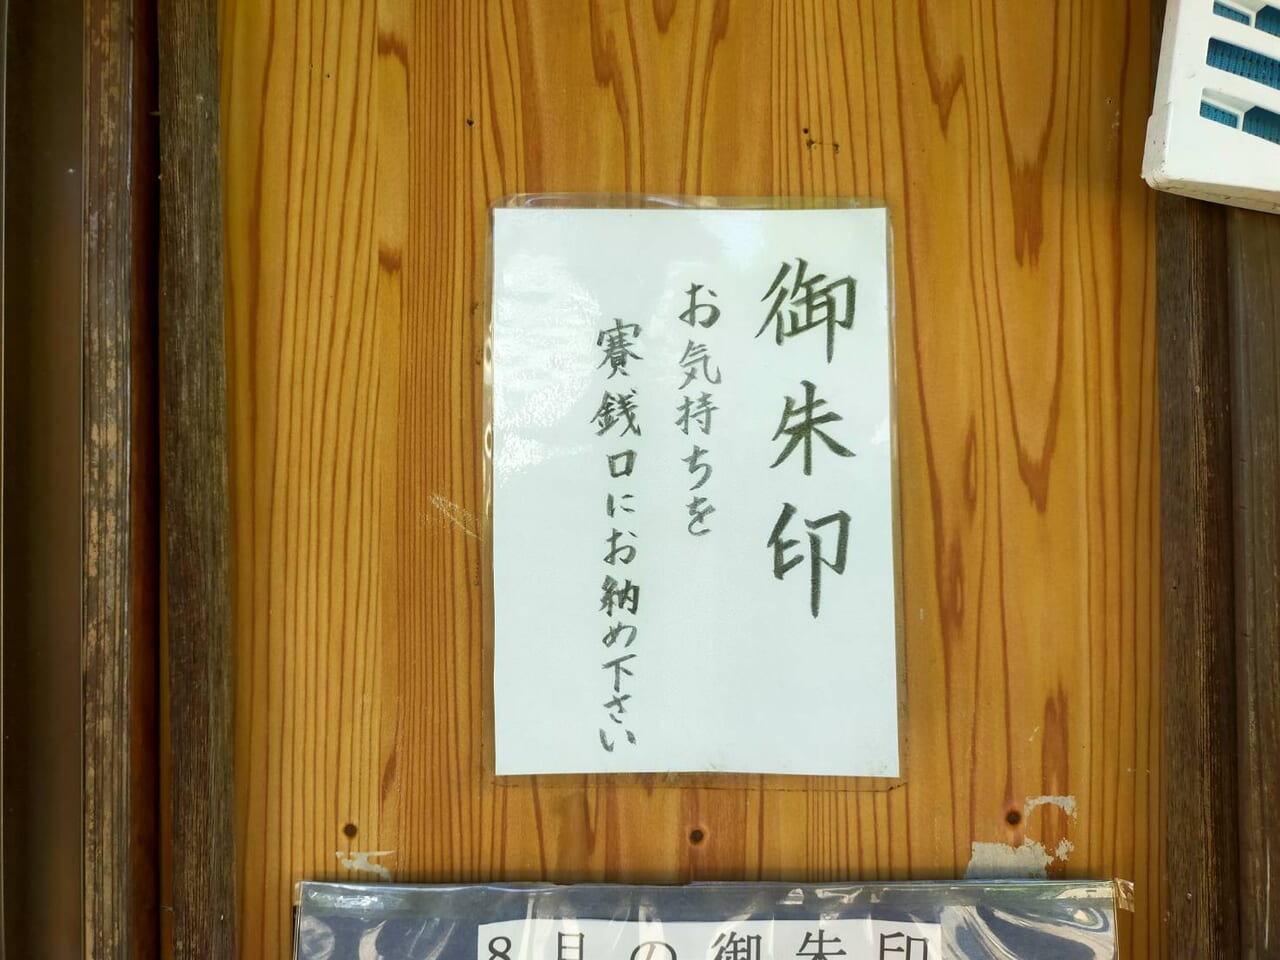 御朱印
お気持ちを
賽銭口にお納め下さい
8月の御朱印